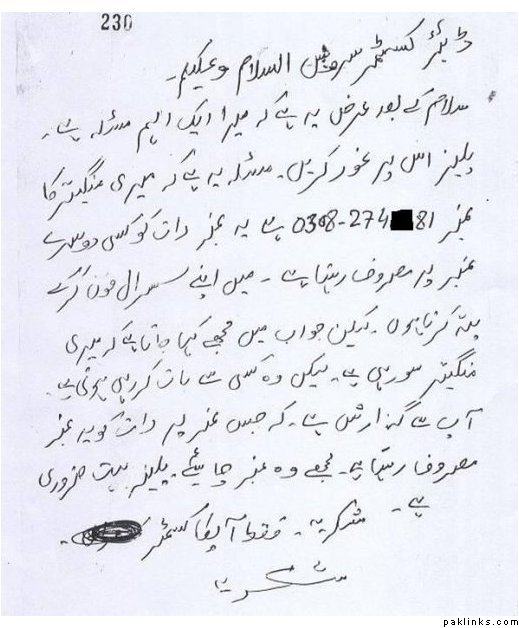 230
ڈیئر کسٹمر سروس السلام وعلیکم۔
سلام کے بعد عرض یہ ہے کہ میرا ایک اہم مسئلہ ہے۔
پلیز اس پر غور کریں۔ مسئلہ یہ ہے کہ میری منگیتر کا
نمبر 0308-274 81 ہے یہ نمبر رات کو کسی دوسرے
نمبر پر مصروف رہتا ہے۔ میں اپنے سسرال فون کرکے
پتہ کرتا ہوں۔ لیکن جواب میں مجھے کہا جاتا ہے کہ میری
منگیتر سو رہی ہے۔ لیکن وہ کسی سے بات کر رہی ہوتی ہے۔
آپ سے گذارش ہے۔ کہ جس نمبر پر رات کو یہ نمبر
مصروف رہتا ہے۔ مجھے وہ نمبر چاہیئے۔ پلیز بہت ضروری
ہے۔ شکریہ۔ فقط آپکا کسٹمر
شکریہ
paklinks.com